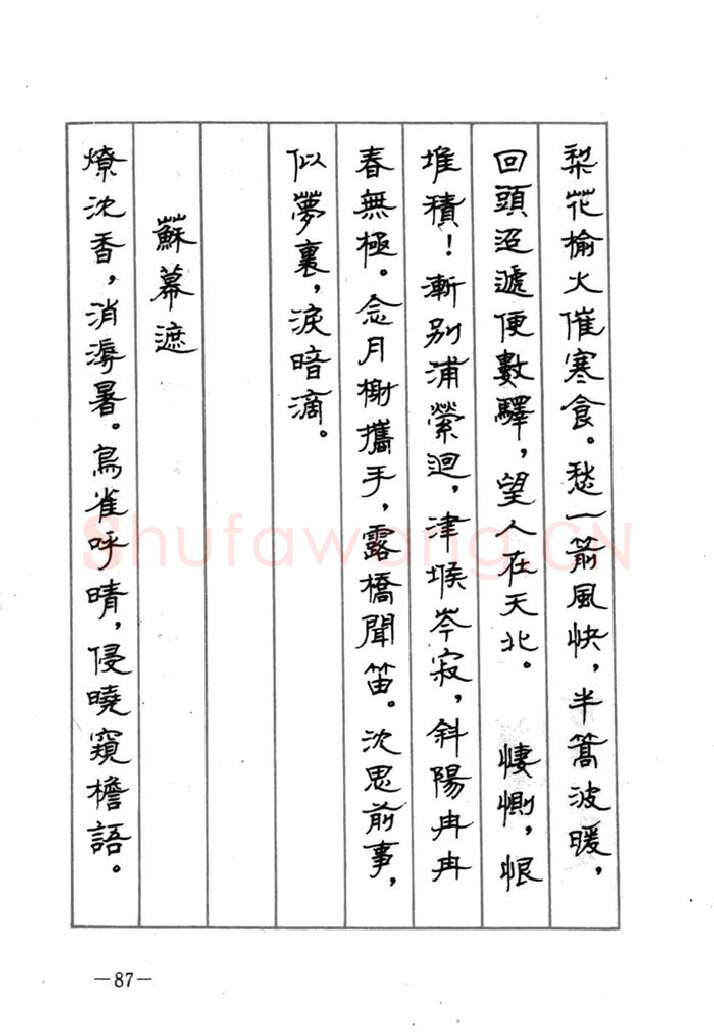 梨花榆火催寒食。愁一箭風快，半篙波暖，
回頭迢遞便數驛，望人在天北。 悽惻，恨
堆積！漸别浦縈迴，津堠岑寂，斜陽冉冉
春無極。念月榭攜手，露橋聞笛。沈思前事，
似夢裏，淚暗滴。
蘇幕遮
燎沈香，消溽暑。鳥雀呼晴，侵曉窺檐語。
—87—
Shufawang.CN